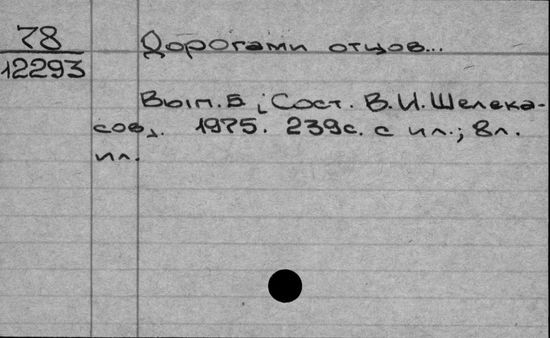 78
12293
Дорогами отцов...
Вып. 5; Сост. В.И. Шелека-
сов,. 1975. 239с. с ил.; 8л.
ил.